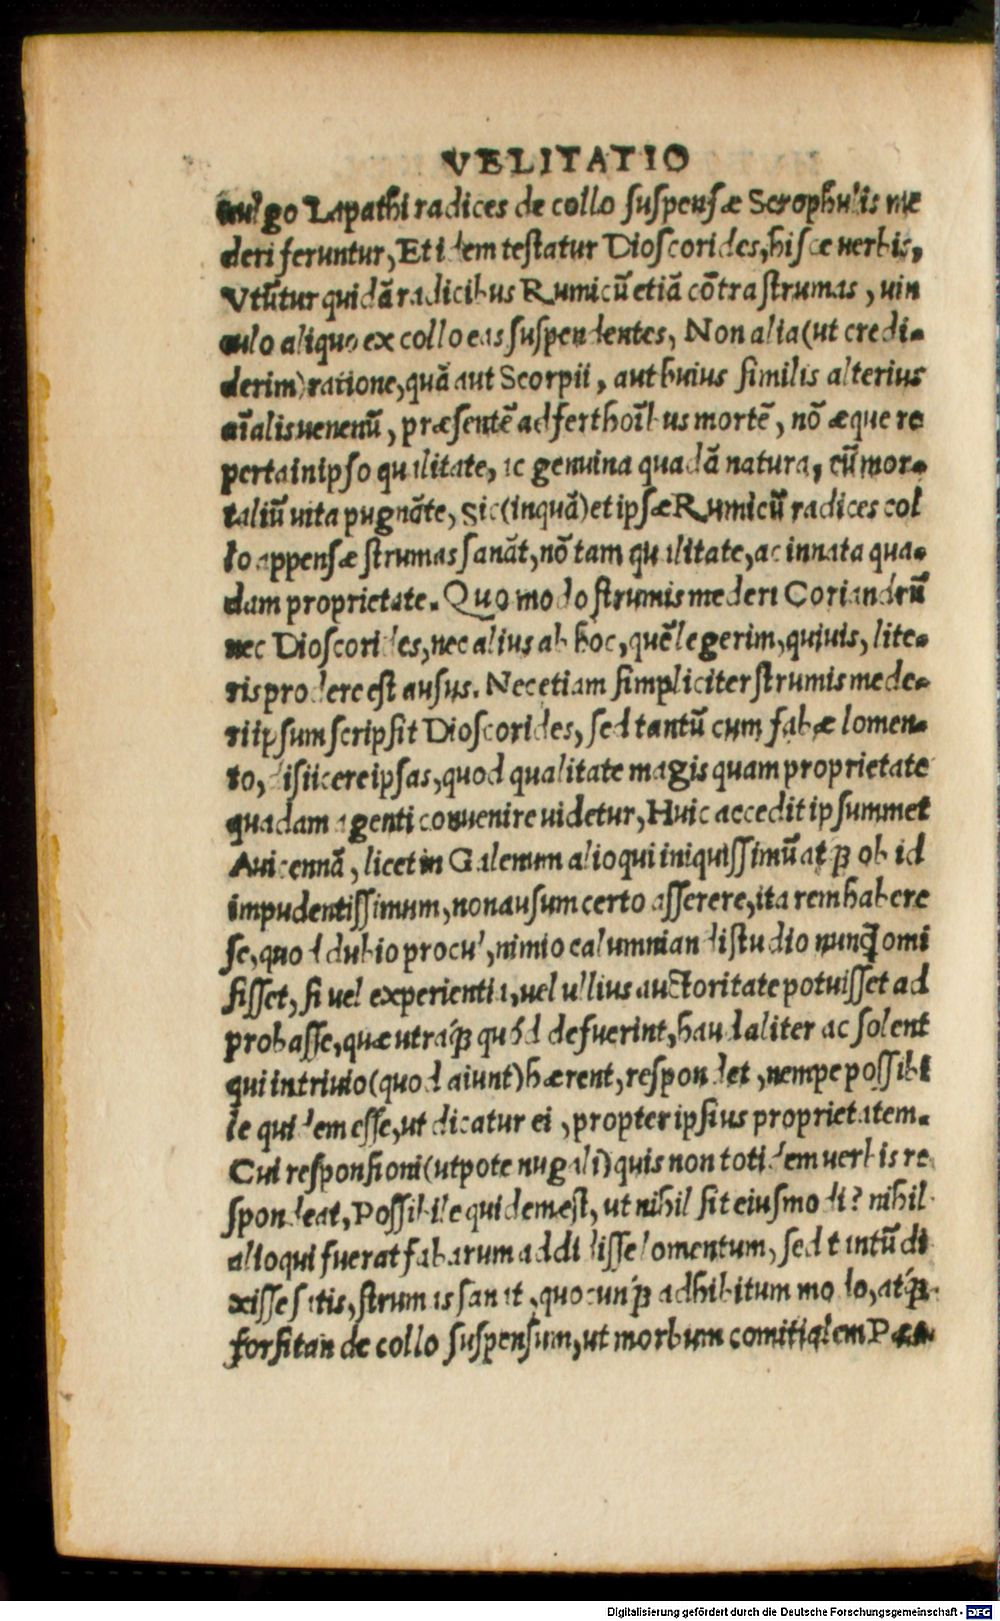 VELITATIO
uulgo Lapathi radices de collo suspensæ Scrophulis me
deri feruntur, Et idem testatur Dioscorides, hisce uerbis,
Vtũtur quidã radicibus Rumicũ etiã cõtra strumas, uin
culo aliquo ex collo eas suspendentes, Non alia (ut credi-
derim) ratione, quã aut Scorpii, aut huius similis alterius
aĩalis uenenũ, præsentẽ adfert hoĩbus mortẽ, nõ æque re
perta in ipso qualitate, ac genuina quadã natura, cũ mor-
taliũ uita pugnãte, Sic (inquã) et ipsæ Rumicũ radices col
lo appensæ strumas sanãt, nõ tam qualitate, ac innata qua-
dam proprietate. Quomodo strumis mederi Coriandrũ
nec Dioscorides, nec alius ab hoc, quẽ legerim, quiuis, lite-
ris prodere est ausus. Nec etiam simpliciter strumis mede-
ri ipsum scripsit Dioscorides, sed tantũ cum fabæ lomen-
to, disiicere ipsas, quod qualitate magis quam proprietate
quadam agenti conuenire uidetur, Huic accedit ipsummet
Auicennã, licet in Galenum alioqui iniquissimũ atq́ꝫ ob id
impudentissimum, non ausum certo asserere, ita rem habere
se, quod dubio procul, nimio calumniandi studio nunq̃ omi
sisset, si uel experientia, uel ullius auctoritate potuisset ad
probasse, quæ utraq́ꝫ quòd defuerint, haud aliter ac solent
qui in triuio (quod aiunt) hærent, respondet, nempe possibi
le quidem esse, ut dicatur ei, propter ipsius proprietatem.
Cui responsioni (utpote nugali) quis non totidem uerbis re
spondeat, Possibile quidem est, ut nihil sit eiusmodi? nihil
alioqui fuerat fabarum addidisse lomentum, sed tantũ di
xisse satis, strumas sanat, quocunq́ꝫ adhibitum modo, atq́ꝫ
forsitan de collo suspensum, ut morbum comitialem Pæo
Digitalisierung gefördert durch die Deutsche Forschungsgemeinschaft - DFG